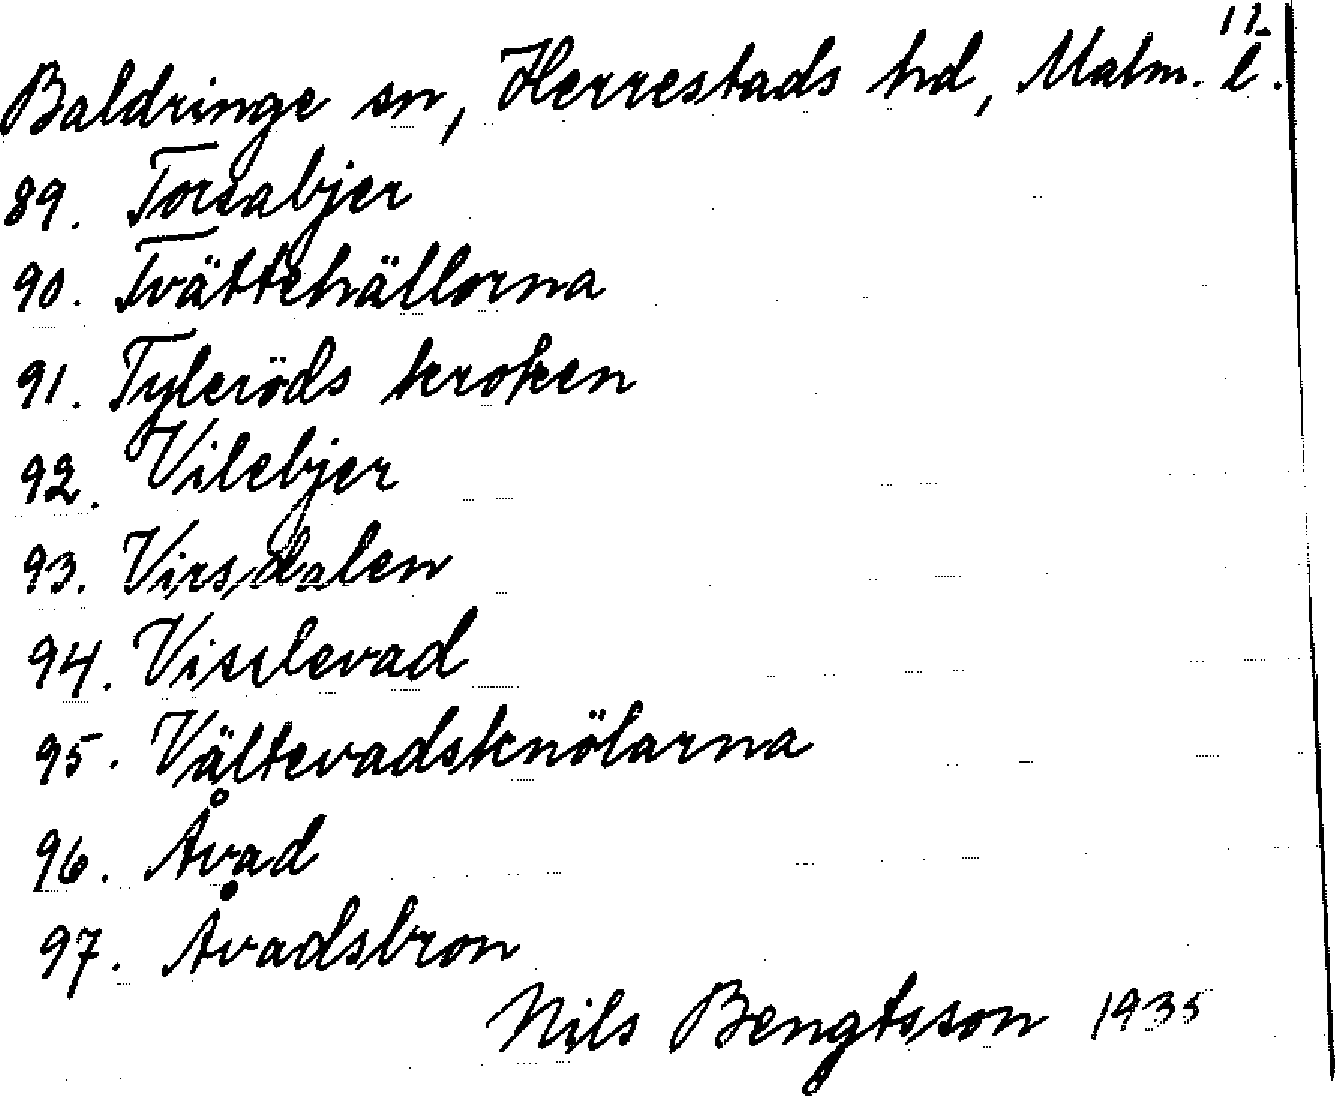 12.
Baldringe sn, Herrestads hd, Malm. l.
89. Torsabjer
90. Tvättehällorna
91. Tyleröds kroken
92. Vilebjer
93. Virsdalen
94. Visslevad
95. Vältevadsknölarna
96. Åvad
97. Åvadsbron
Nils Bengtsson 1935